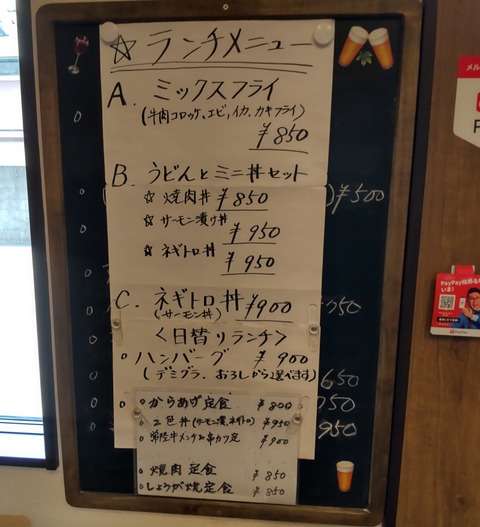 ☆ランチメニュー
A. ミックスフライ
(牛肉コロッケ、エビ、イカ、カキフライ)
¥850
B. うどんとミニ丼セット
☆ 焼肉丼 ¥850
☆ サーモン漬け丼
¥950
☆ ネギトロ丼
¥950
C. ネギトロ丼 ¥900
(サーモン丼)
<日替りランチ>
○ ハンバーグ ¥900
(デミグラ、おろしから選べます)
○ からあげ定食 ¥800
○ 2色丼(サーモン漬、ネギトロ) ¥950
○ 常陸牛メンチ&串カツ定 ¥900
○ 焼肉定食 ¥850
○ しょうが焼定食 ¥850
)¥500
650
950
PayPay